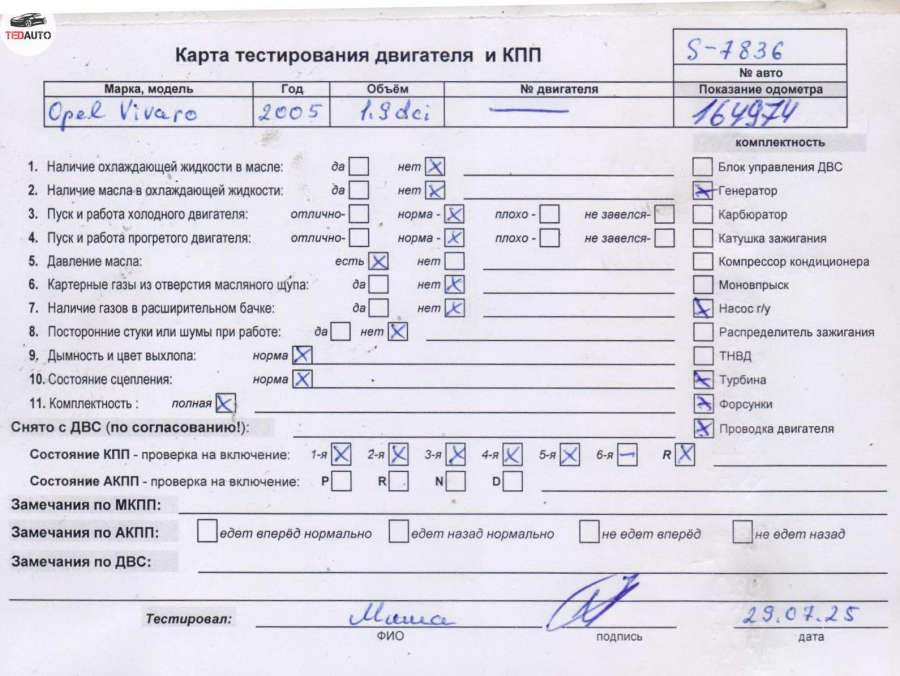 TEDAUTO
Карта тестирования двигателя и КПП
S-7836
№ авто
Марка, модель Год Объём № двигателя Показание одометра
Opel Vivaro 2005 1.9dci — 164974
комплектность
1. Наличие охлаждающей жидкости в масле: да нет X
Блок управления ДВС
2. Наличие масла в охлаждающей жидкости: да нет X
X Генератор
3. Пуск и работа холодного двигателя: отлично- норма - X плохо - не завелся-
Карбюратор
4. Пуск и работа прогретого двигателя: отлично- норма - X плохо - не завелся-
Катушка зажигания
5. Давление масла: есть X нет
Компрессор кондиционера
6. Картерные газы из отверстия масляного щупа: да нет X
Моновпрыск
7. Наличие газов в расширительном бачке: да нет X
X Насос г/у
8. Посторонние стуки или шумы при работе: да нет X
Распределитель зажигания
9. Дымность и цвет выхлопа: норма X
ТНВД
10. Состояние сцепления: норма X
X Турбина
11. Комплектность : полная X
X Форсунки
Снято с ДВС (по согласованию!):
X Проводка двигателя
Состояние КПП - проверка на включение: 1-я X 2-я X 3-я X 4-я X 5-я X 6-я — R X
Состояние АКПП - проверка на включение: P R N D
Замечания по МКПП:
Замечания по АКПП: едет вперёд нормально едет назад нормально не едет вперёд не едет назад
Замечания по ДВС:
Тестировал: Миша 29.07.25
ФИО подпись дата